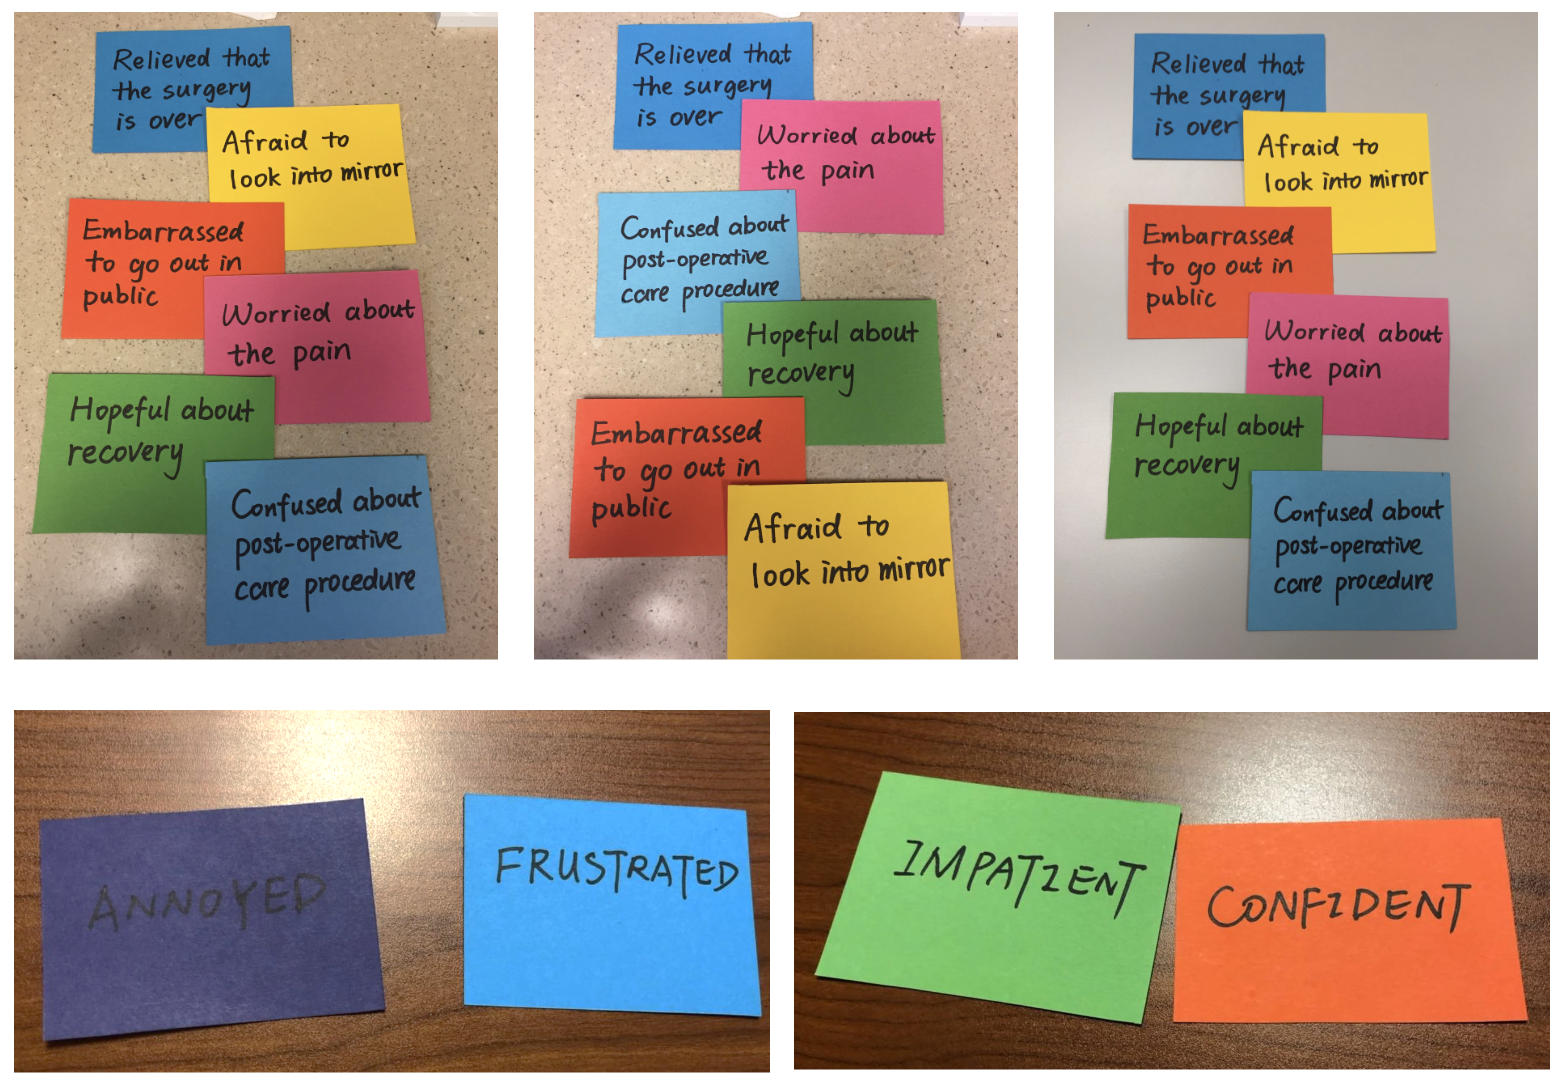 Relieved that
the surgery
is over
Afraid to
look into mirror
Embarrassed
to go out in
public
Worried about
the pain
Hopeful about
recovery
Confused about
post-operative
care procedure
Relieved that
the surgery
is over
Worried about
the pain
Confused about
post-operative
care procedure
Hopeful about
recovery
Embarrassed
to go out in
public
Afraid to
look into mirror
Relieved that
the surgery
is over
Afraid to
look into mirror
Embarrassed
to go out in
public
Worried about
the pain
Hopeful about
recovery
Confused about
post-operative
care procedure
ANNOYED
FRUSTRATED
IMPATIENT
CONFIDENT